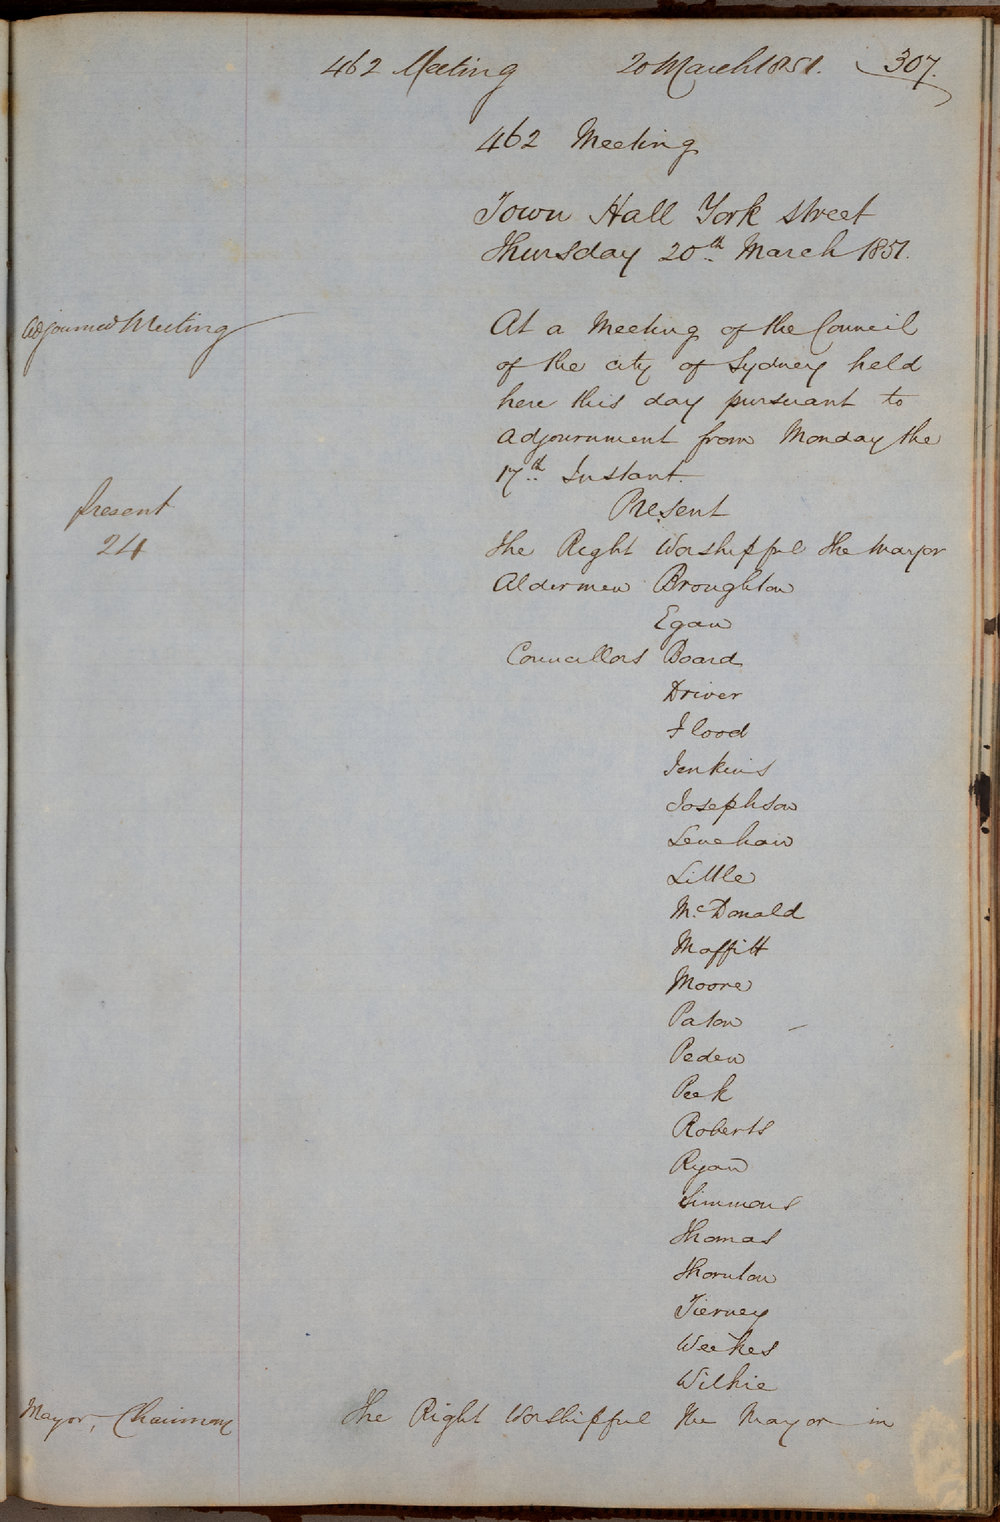 462 Meeting 20 March 1851. 307.
462 Meeting
Town Hall York street
Thursday 20th. March 1851.
Adjourned Meeting
At a Meeting of the Council
of the city of Sydney held
here this day pursuant to
adjournment from Monday the
17th. Instant.
Present
24
Present
The Right Worshipful The Mayor
Aldermen Broughton
Egan
Councillors Board
Driver
Flood
Jenkins
Josephson
Lenehan
Little
Mc.Donald
Moffitt
Moore
Paton
Peden
Peek
Roberts
Ryan
Simmons
Thomas
Thornton
Tierney
Weekes
Wilkie
Mayor, Chairman
The Right Worshipful the Mayor in